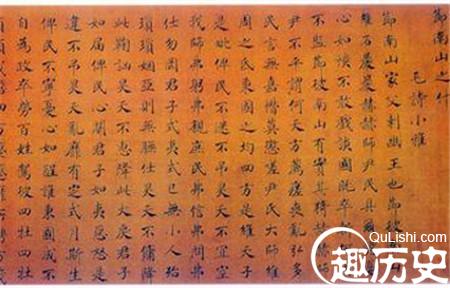 節南山之什
毛詩小雅
節南山家父刺幽王也節彼南山
維石巖巖赫赫師尹民具爾瞻
心如惔不敢戲談國既卒斬
不監節彼南山有實其猗
尹不平謂何天方薦瘥喪亂弘多
民言無嘉憯莫懲嗟尹氏大師維
周之氐秉國之均四方是維天子
是毗俾民不迷不弔昊天不宜空
我師弗躬弗親庶民弗信弗問弗
仕勿罔君子式夷式已無小人殆
瑣瑣姻亞則無膴仕昊天不傭降
此鞠訩昊天不惠降此大戾君子
如屆俾民心闋君子如夷惡怒是
違不弔昊天亂靡有定式月斯生
俾民不寧憂心如酲誰秉國成不
自為政卒勞百姓駕彼四牡四牡
QuLishi.com
趣历史